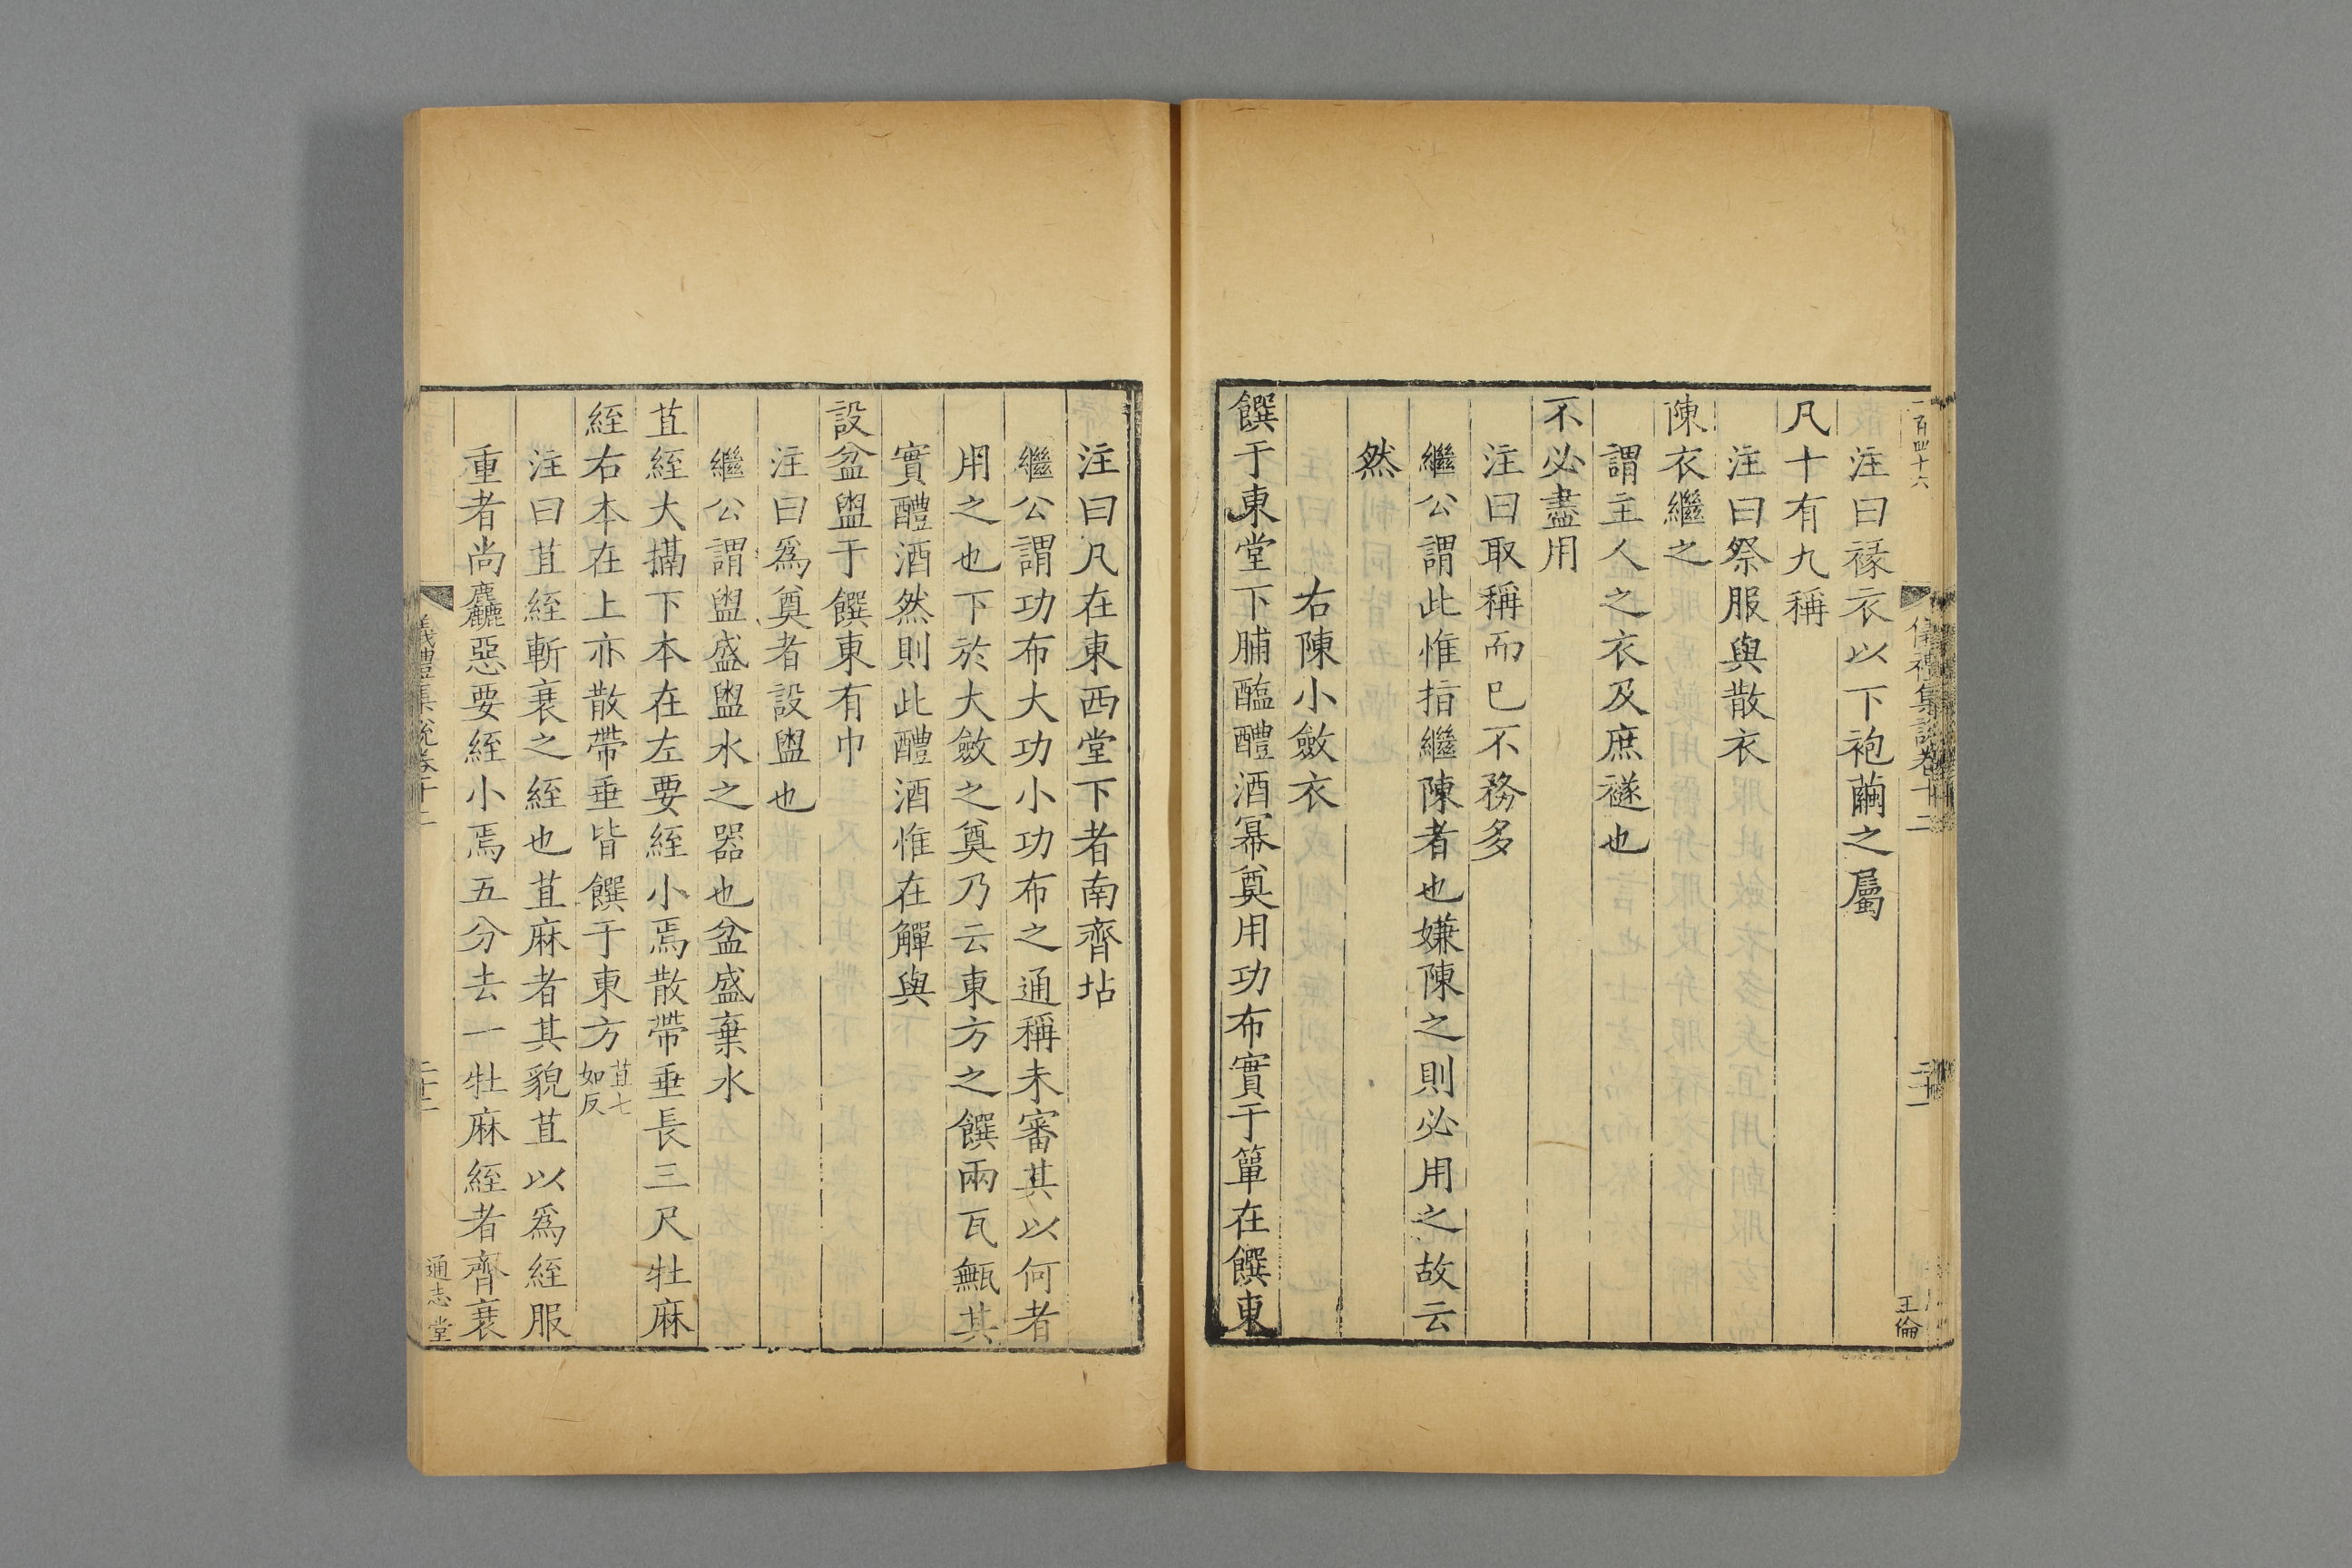 一百四十六
儀禮集說卷十二
二十一
王倫
注曰褖衣以下袍繭之屬
凡十有九稱
注曰祭服與散衣
陳衣繼之
謂主人之衣及庶襚也
不必盡用
注曰取稱而已不務多
繼公謂此惟指繼陳者也嫌陳之則必用之故云
然
右陳小斂衣
饌于東堂下脯醢醴酒冪奠用功布實于簞在饌東
注曰凡在東西堂下者南齊坫
繼公謂功布大功小功布之通稱未審其以何者
用之也下於大斂之奠乃云東方之饌兩瓦甒其
實醴酒然則此醴酒惟在觶與
設盆盥于饌東有巾
注曰爲奠者設盥也
繼公謂盥盛盥水之器也盆盛棄水
苴絰大搹下本在左要絰小焉散帶垂長三尺牡麻
絰右本在上亦散帶垂皆饌于東方苴七如反
注曰苴絰斬衰之絰也苴麻者其貌苴以爲絰服
重者尚麤惡要絰小焉五分去一牡麻絰者齊衰
儀禮集說卷十二
通志堂